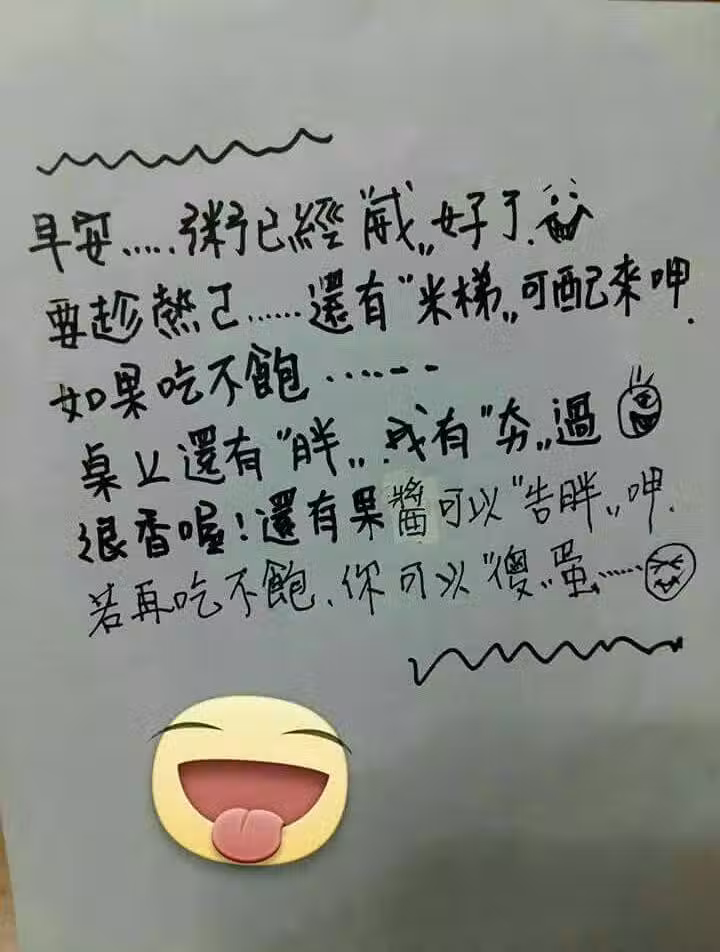 早安.....粥已經"威"好了.
要趁熱ㄛ......還有"米梯"可配來呷.
如果吃不飽......
桌ㄥ還有"胖".我有"夯"過
很香喔!還有果醬可以"告胖"呷.
若再吃不飽.你可以"傻"蛋.....